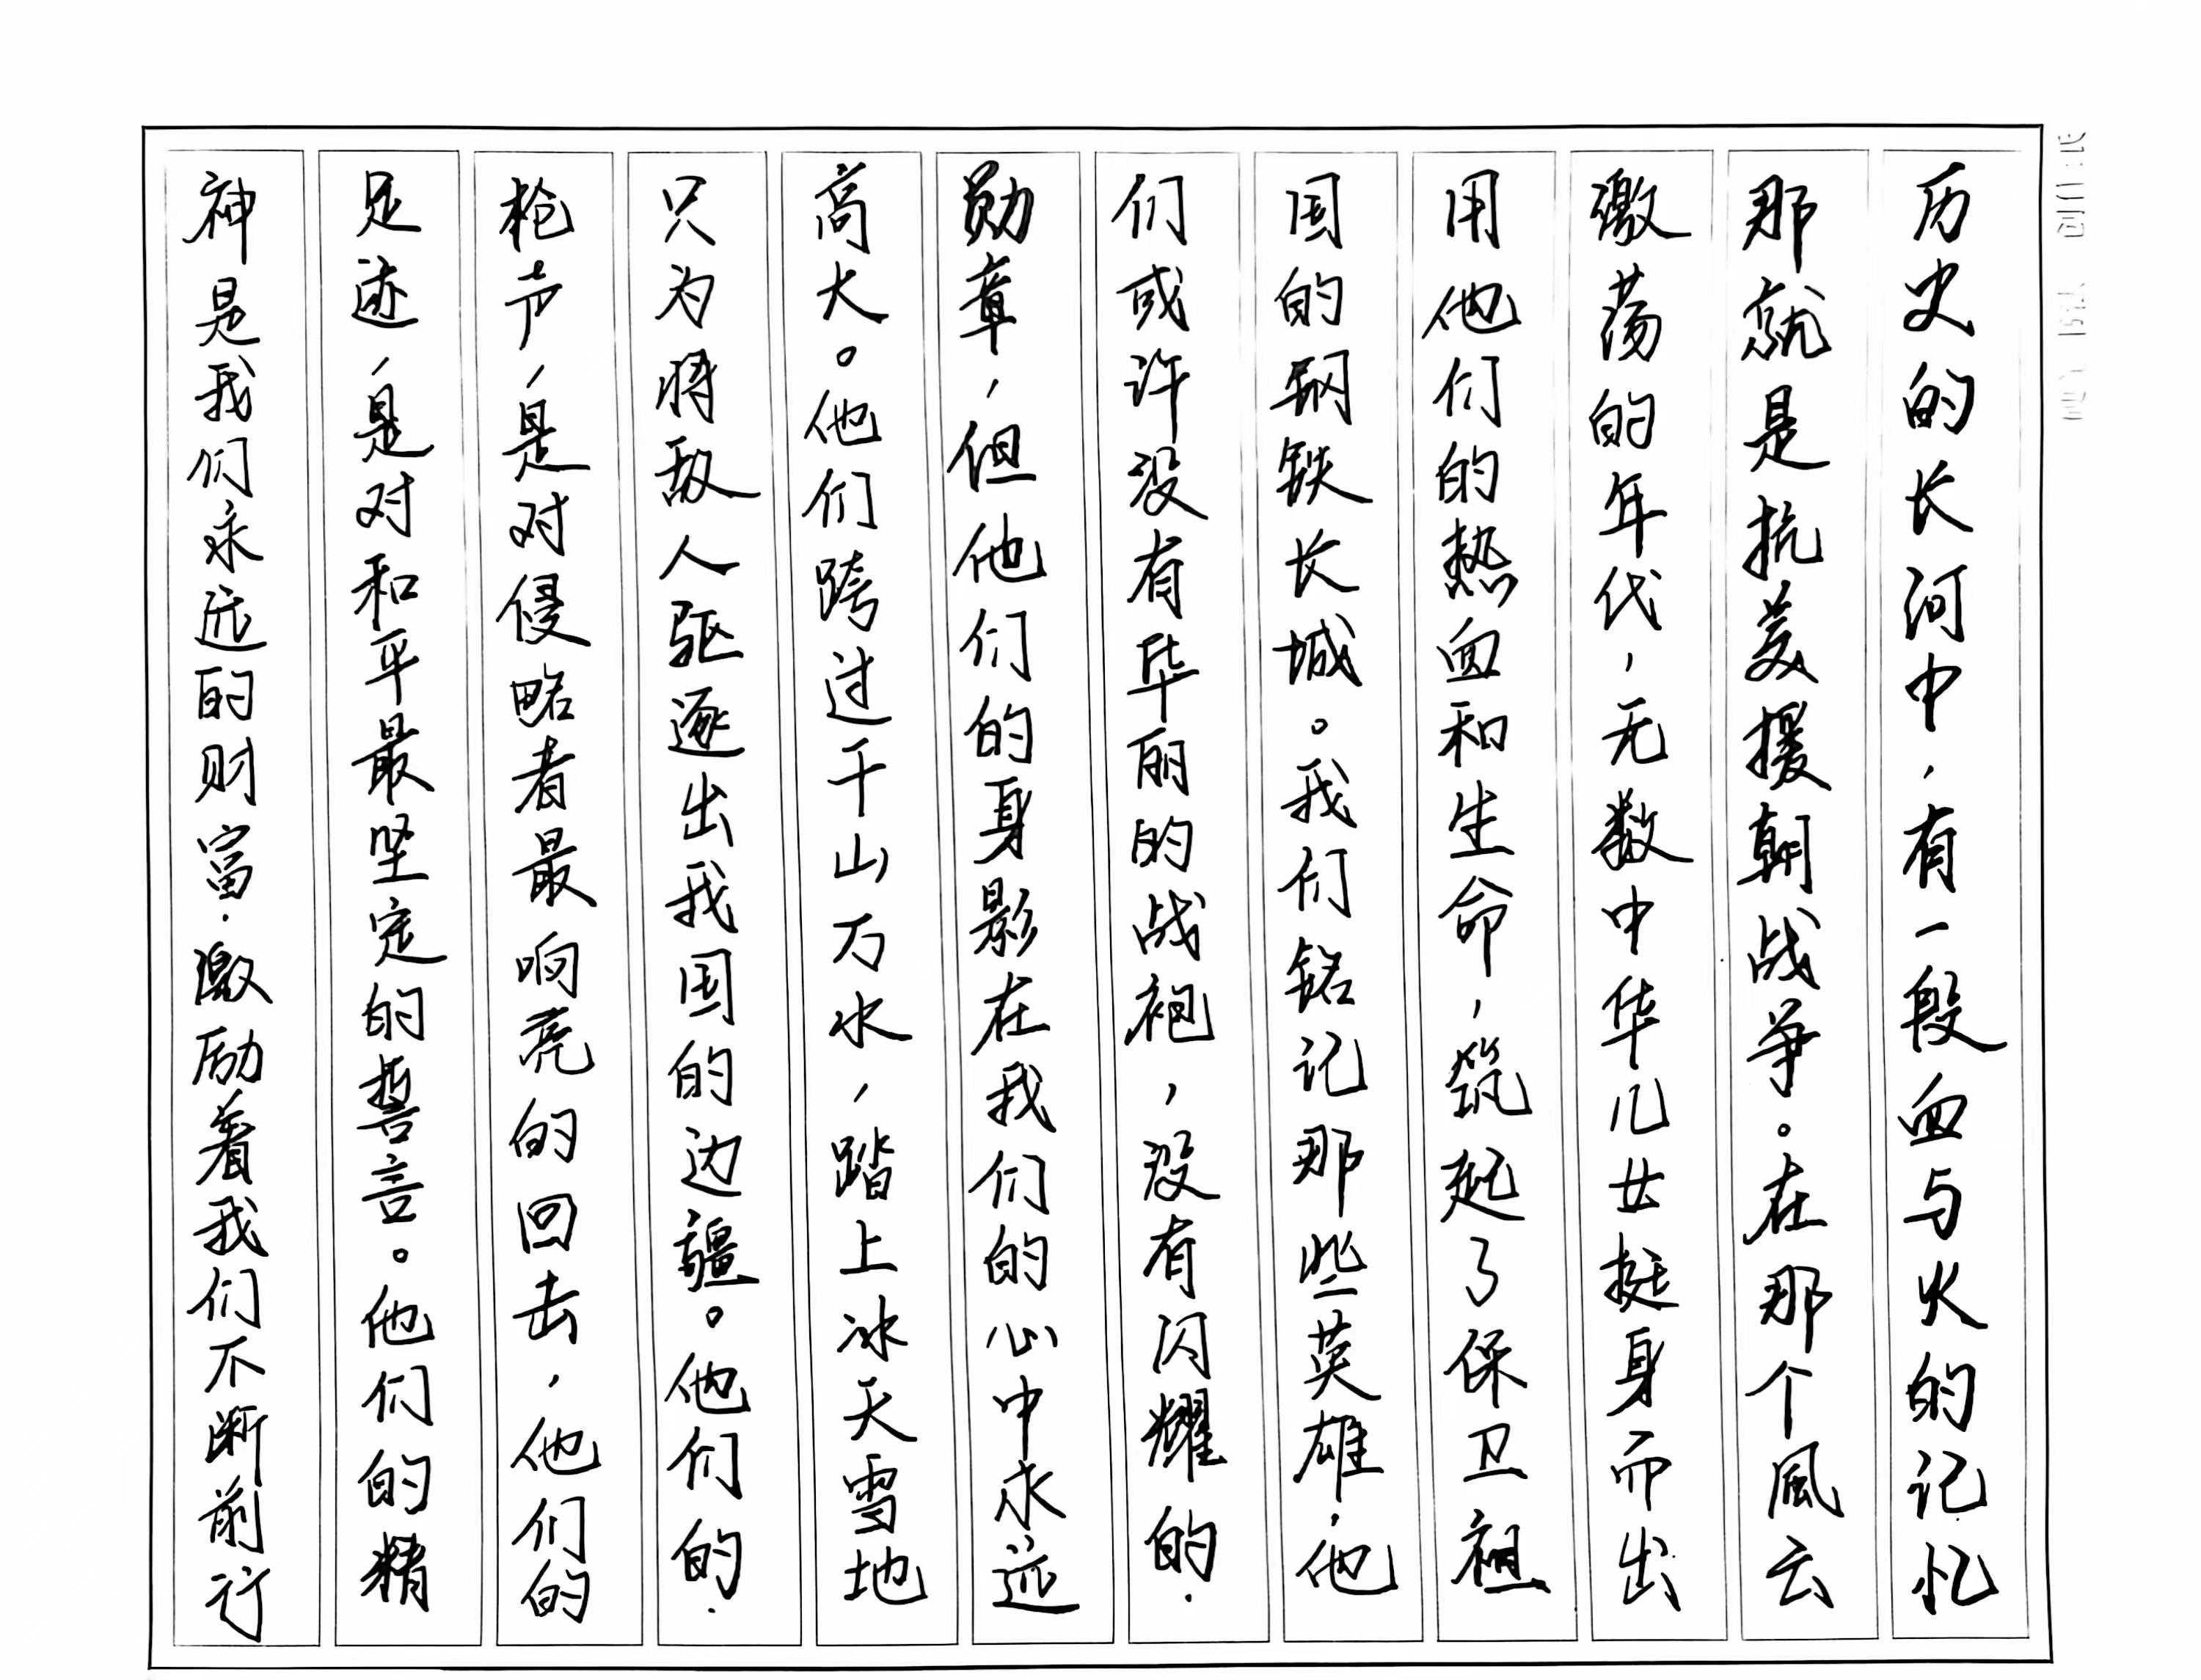 历史的长河中，有一段血与火的记忆
那就是抗美援朝战争。在那个風云
激荡的年代，无数中华儿女挺身而出
用他们的热血和生命，筑起了保卫祖
国的钢铁长城。我们铭记那些英雄，他
们或许没有华丽的战袍，没有闪耀的.
勋章，但他们的身影在我们的心中永远
高大。他们跨过千山万水，踏上冰天雪地
只为将敌人驱逐出我国的边疆。他们的.
枪声，是对侵略者最响亮的回击，他们的
足迹，是对和平最坚定的誓言。他们的精
神是我们永远的财富.激励着我们不断前行